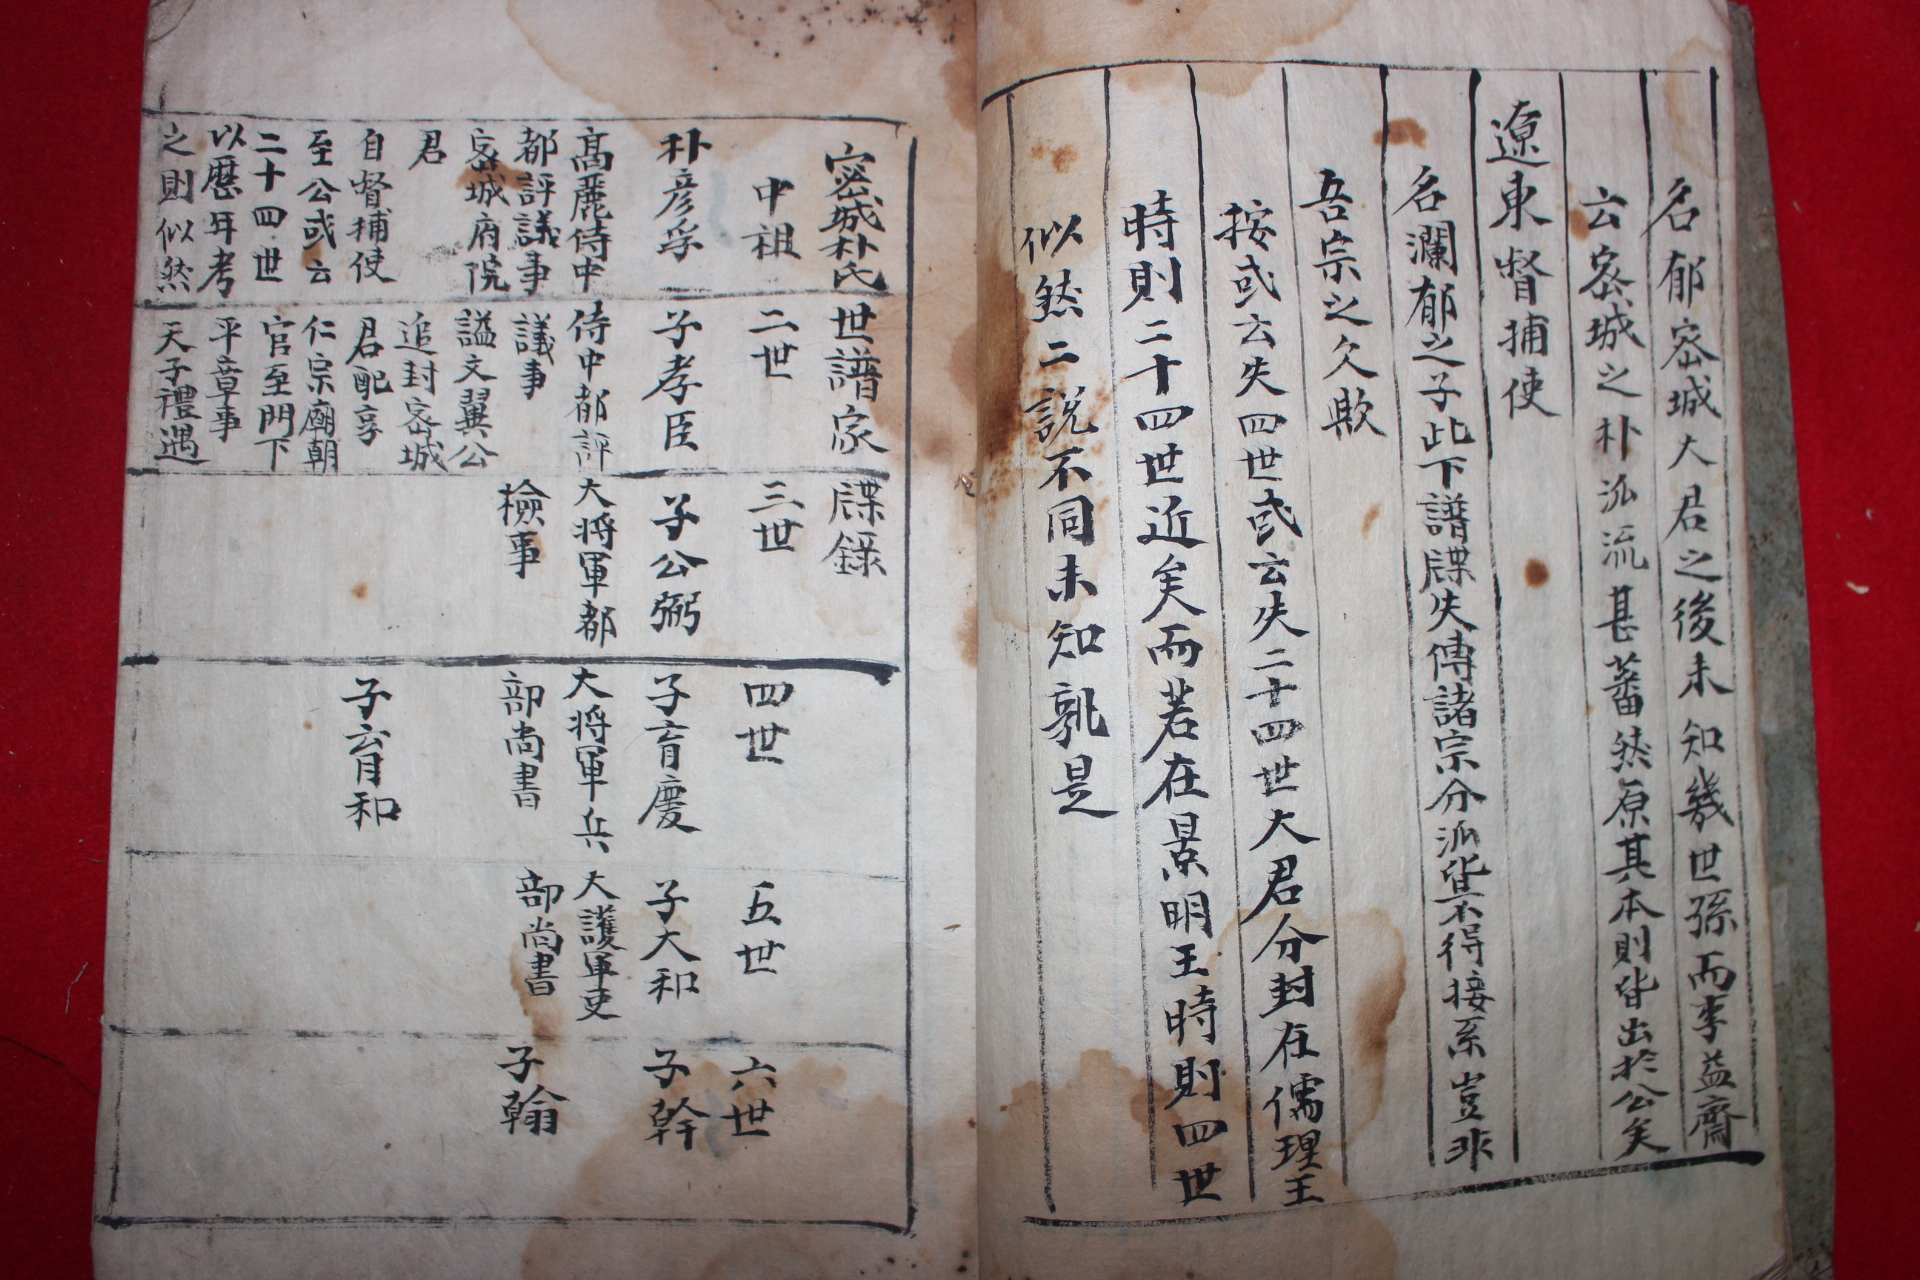 名郁密城大君之後未知幾世孫而李益齋
云密城之朴派流甚蕃然原其本則皆出於公矣
遼東督捕使
名瀾郁之子此下譜牒失傳諸宗分派皆不得接系豈非
吾宗之欠歟
按或云失四世或云失二十四世大君分封在儒理王
時則二十四世近矣而若在景明王時則四世
似然二說不同未知孰是
密城朴氏世譜家牒錄
中祖
二世
三世
四世
五世
六世
朴彦孚
子孝臣
子公弼
子育慶
子大和
子幹
高麗侍中
都評議事
密城府院
君
自督捕使
至公或云
二十四世
以歷年考
之則似然
侍中都評
議事
謚文翼公
追封密城
君配享
仁宗廟朝
官至門下
平章事
天子禮遇
大將軍都
檢事
大將軍兵
部尚書
子育和
大護軍吏
部尚書
子翰